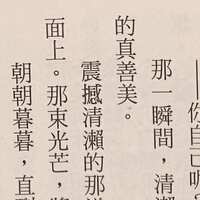 ——你自己呢
那一瞬間，清
的真善美。
震撼清瀨的那
面上。那束光芒，
朝朝暮暮，直到